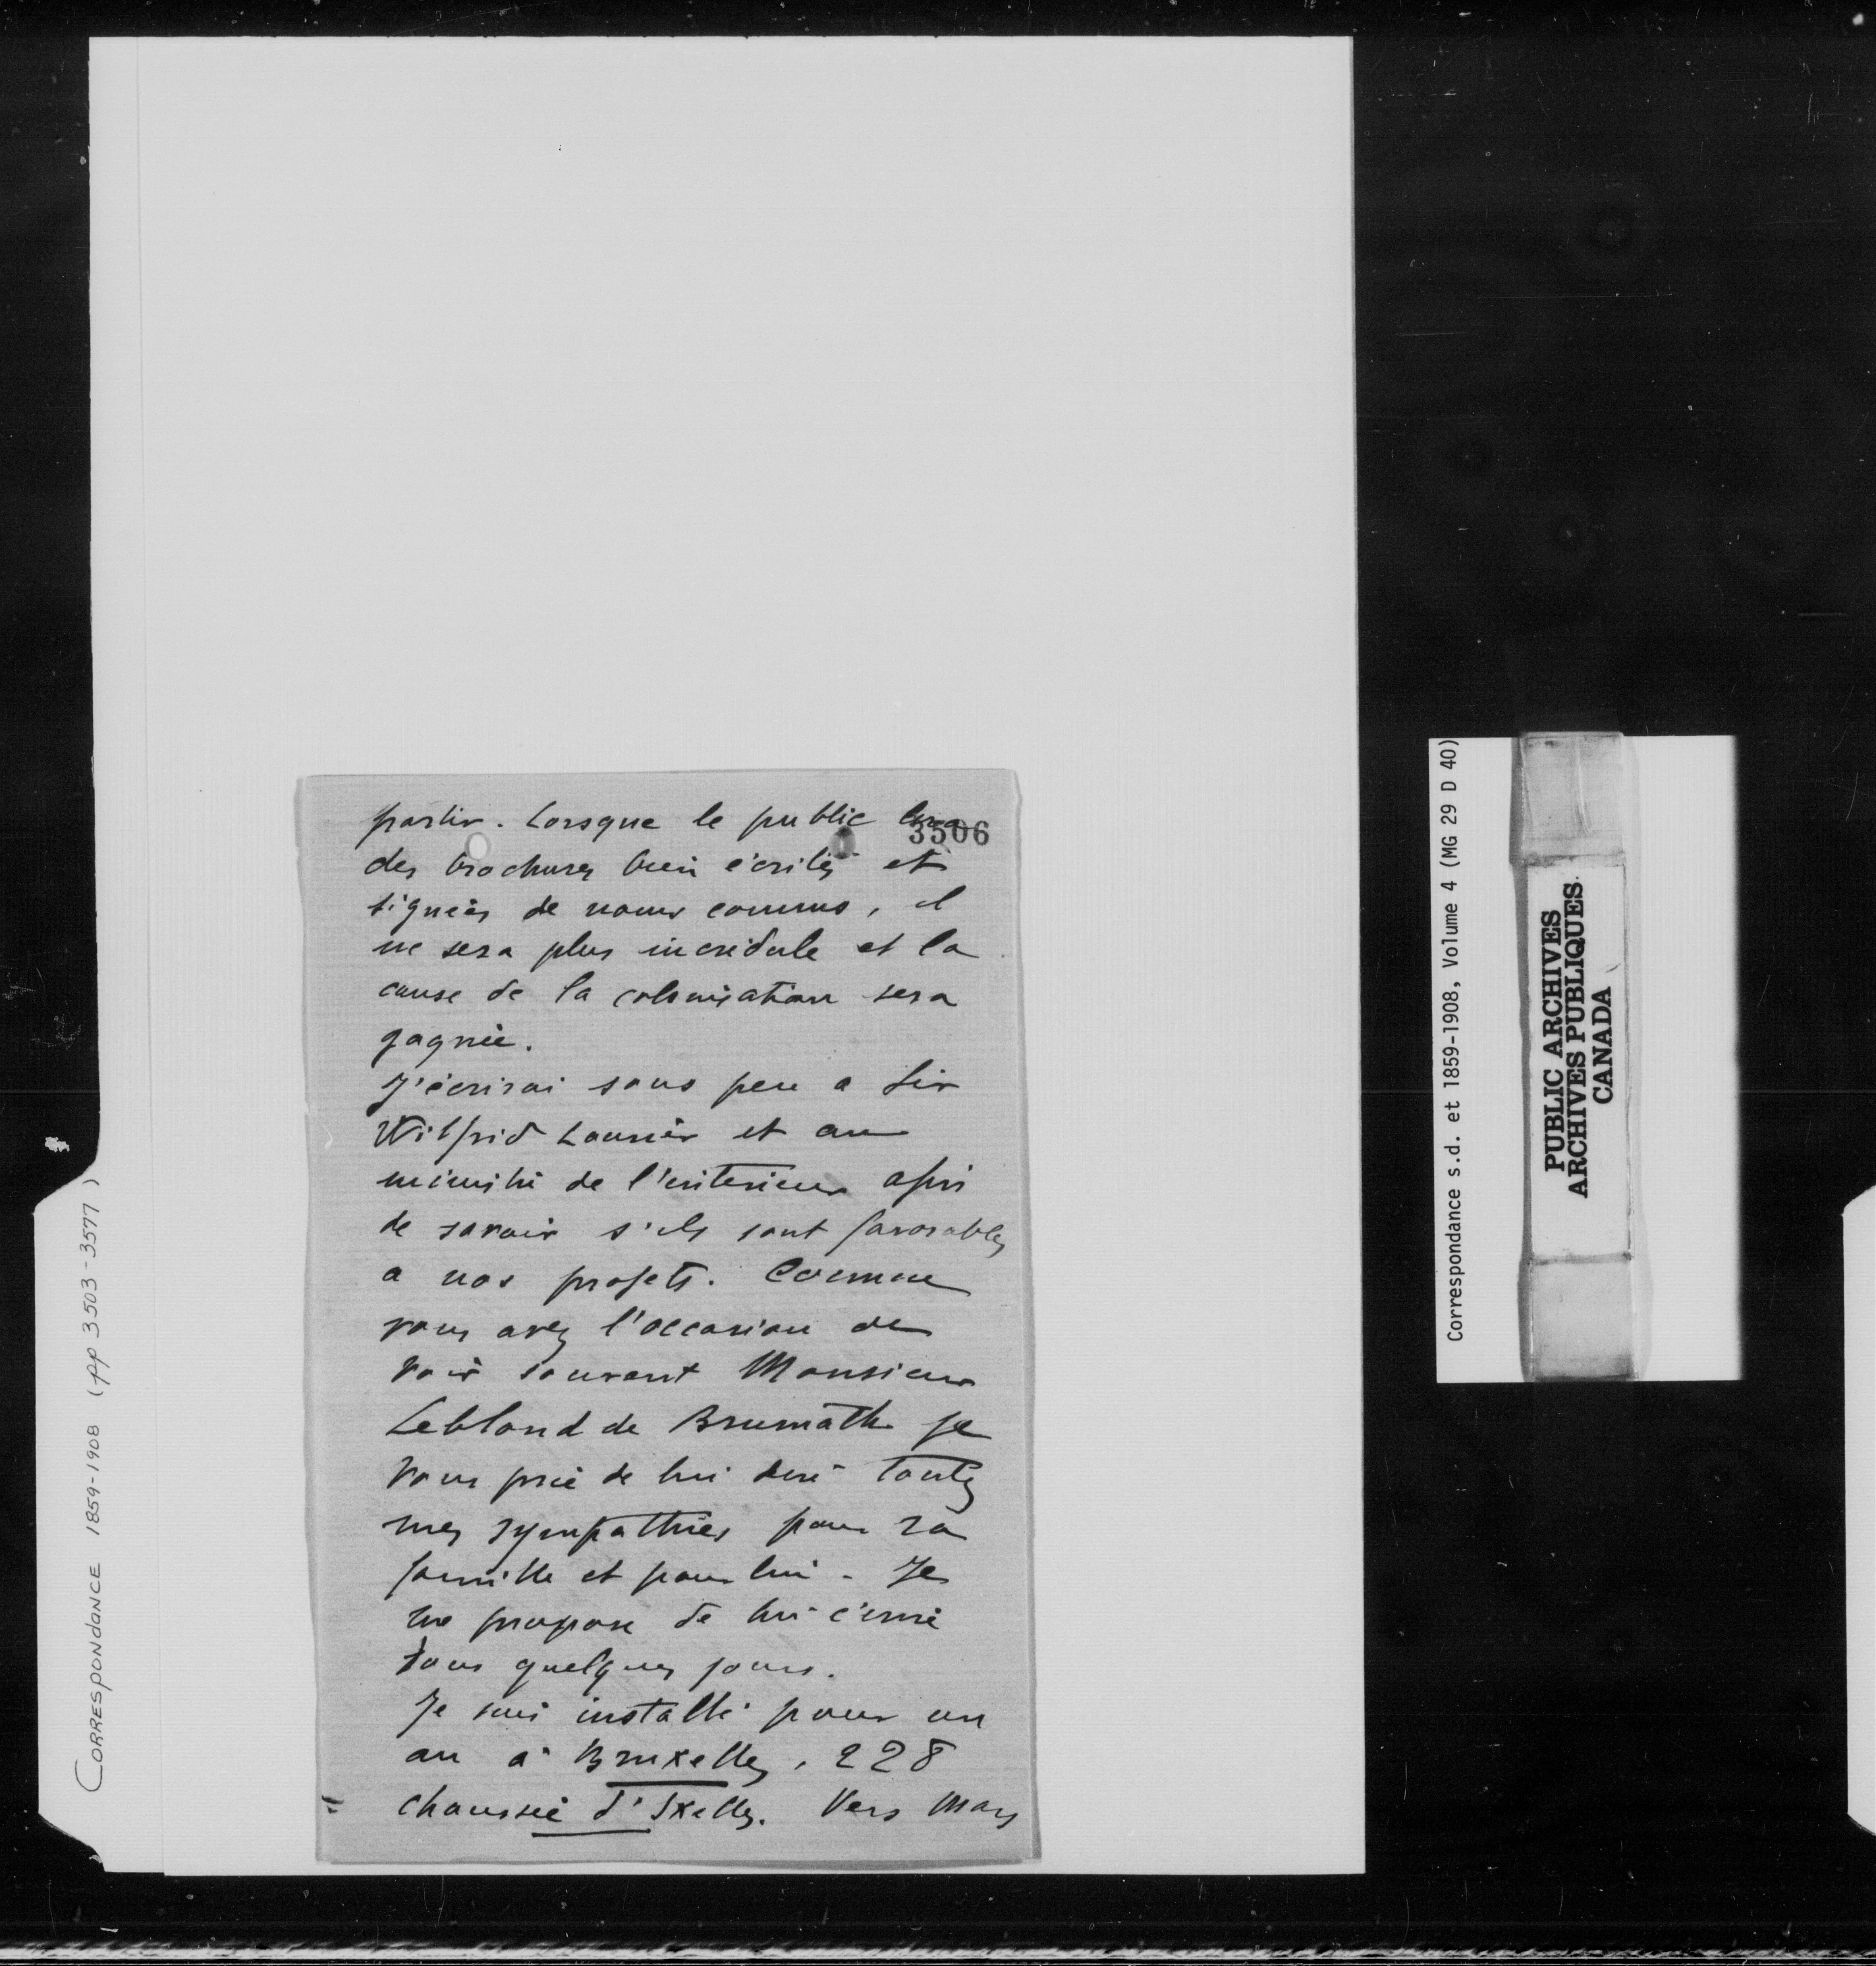 partir. Lorsque le public lira
3506
des brochures bien écrites et
signées de noms connus, il
ne sera plus incrédule et la
cause de la colonisation sera
gagnée.
J'écrirai sous peu a Sir
Wilfrid Laurier et au
ministre de l'interieur afin
de savoir s'ils sont favorables
a nos projets. Comme
vous avez l'occasion de
voir souvent Monsieur
Leblond de Brumath je
vous prie de lui dire toutes
mes sympathies pour sa
famille et pour lui. Je
me propose de lui écrire
sous quelques jours.
Je suis installé pour un
an à Bruxelles, 228
chaussée d'Ixelles. Vers Mars
CORRESPONDANCE 1859-1908 (pp 3503-3577)
Correspondance s.d. et 1859-1908, Volume 4 (MG 29 D 40)
PUBLIC ARCHIVES
ARCHIVES PUBLIQUES
CANADA